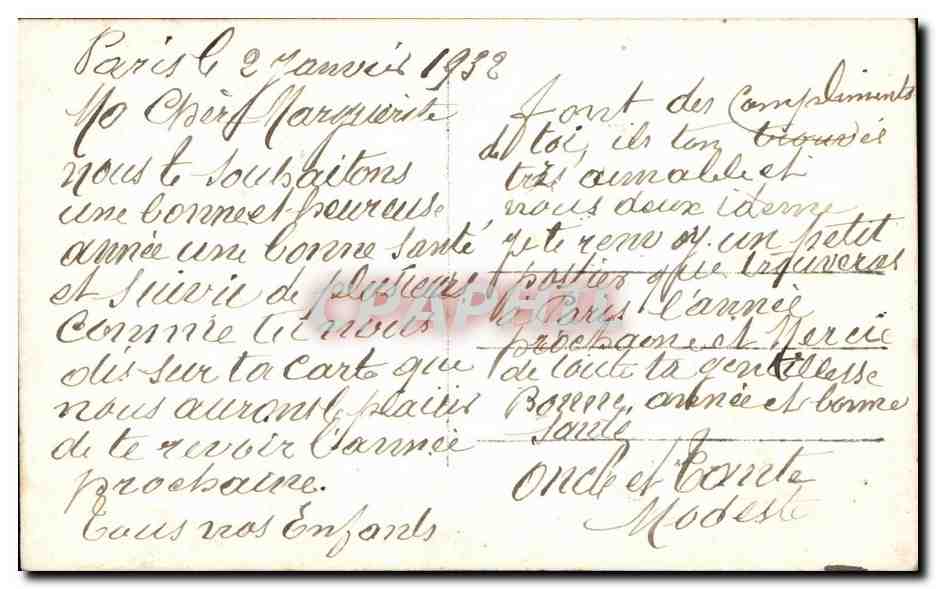 Paris le 2 Janvier 1932
Mo Cher Marguerite
nous te souhaitons
une bonne et heureuse
année une bonne santé
et suivie de plusieurs
comme tu nous
dis sur ta carte que
nous aurons le plaisir
de te revoir l'année
prochaine.
Tous nos Enfants
font des compliments
de toi, ils ton trouvés
très aimable et
nous deux idem
je te renvoy un petit
postier que trouveras
à Paris l'année
prochaine et Mercie
de toute ta gentillesse
Bonne année et bonne
santé
Oncle et Tante
Modeste
CPAPHIL